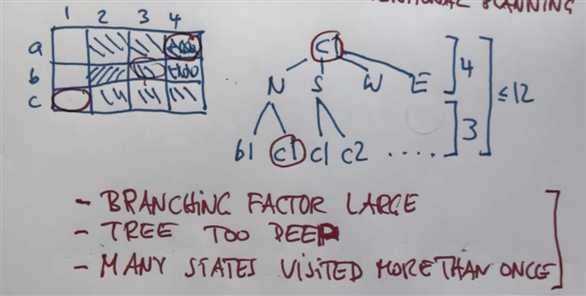 SCANNING
1 2 3 4
a
b
c
C1
N S W E
4
≤12
3
b1 c1 c1 c2 .....
- BRANCHING FACTOR LARGE
- TREE TOO DEEP
- MANY STATES VISITED MORE THAN ONCE